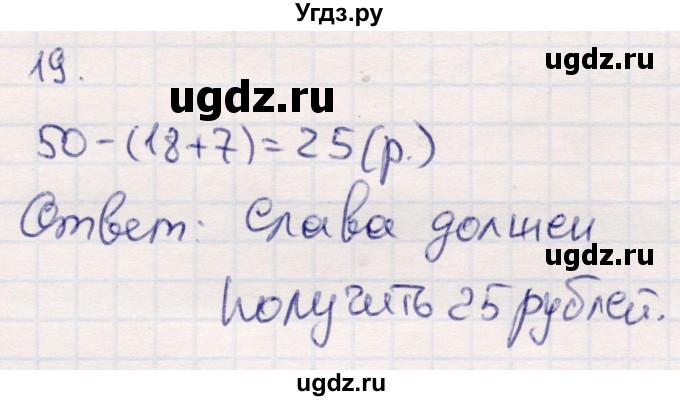 Угдз.ру
19.
ugdz.ru
ugdz.ru
50-(18+7)=25(р.)
Ответ: Слава должен
ugdz.ru
получить 25 рублей.
ugdz.ru